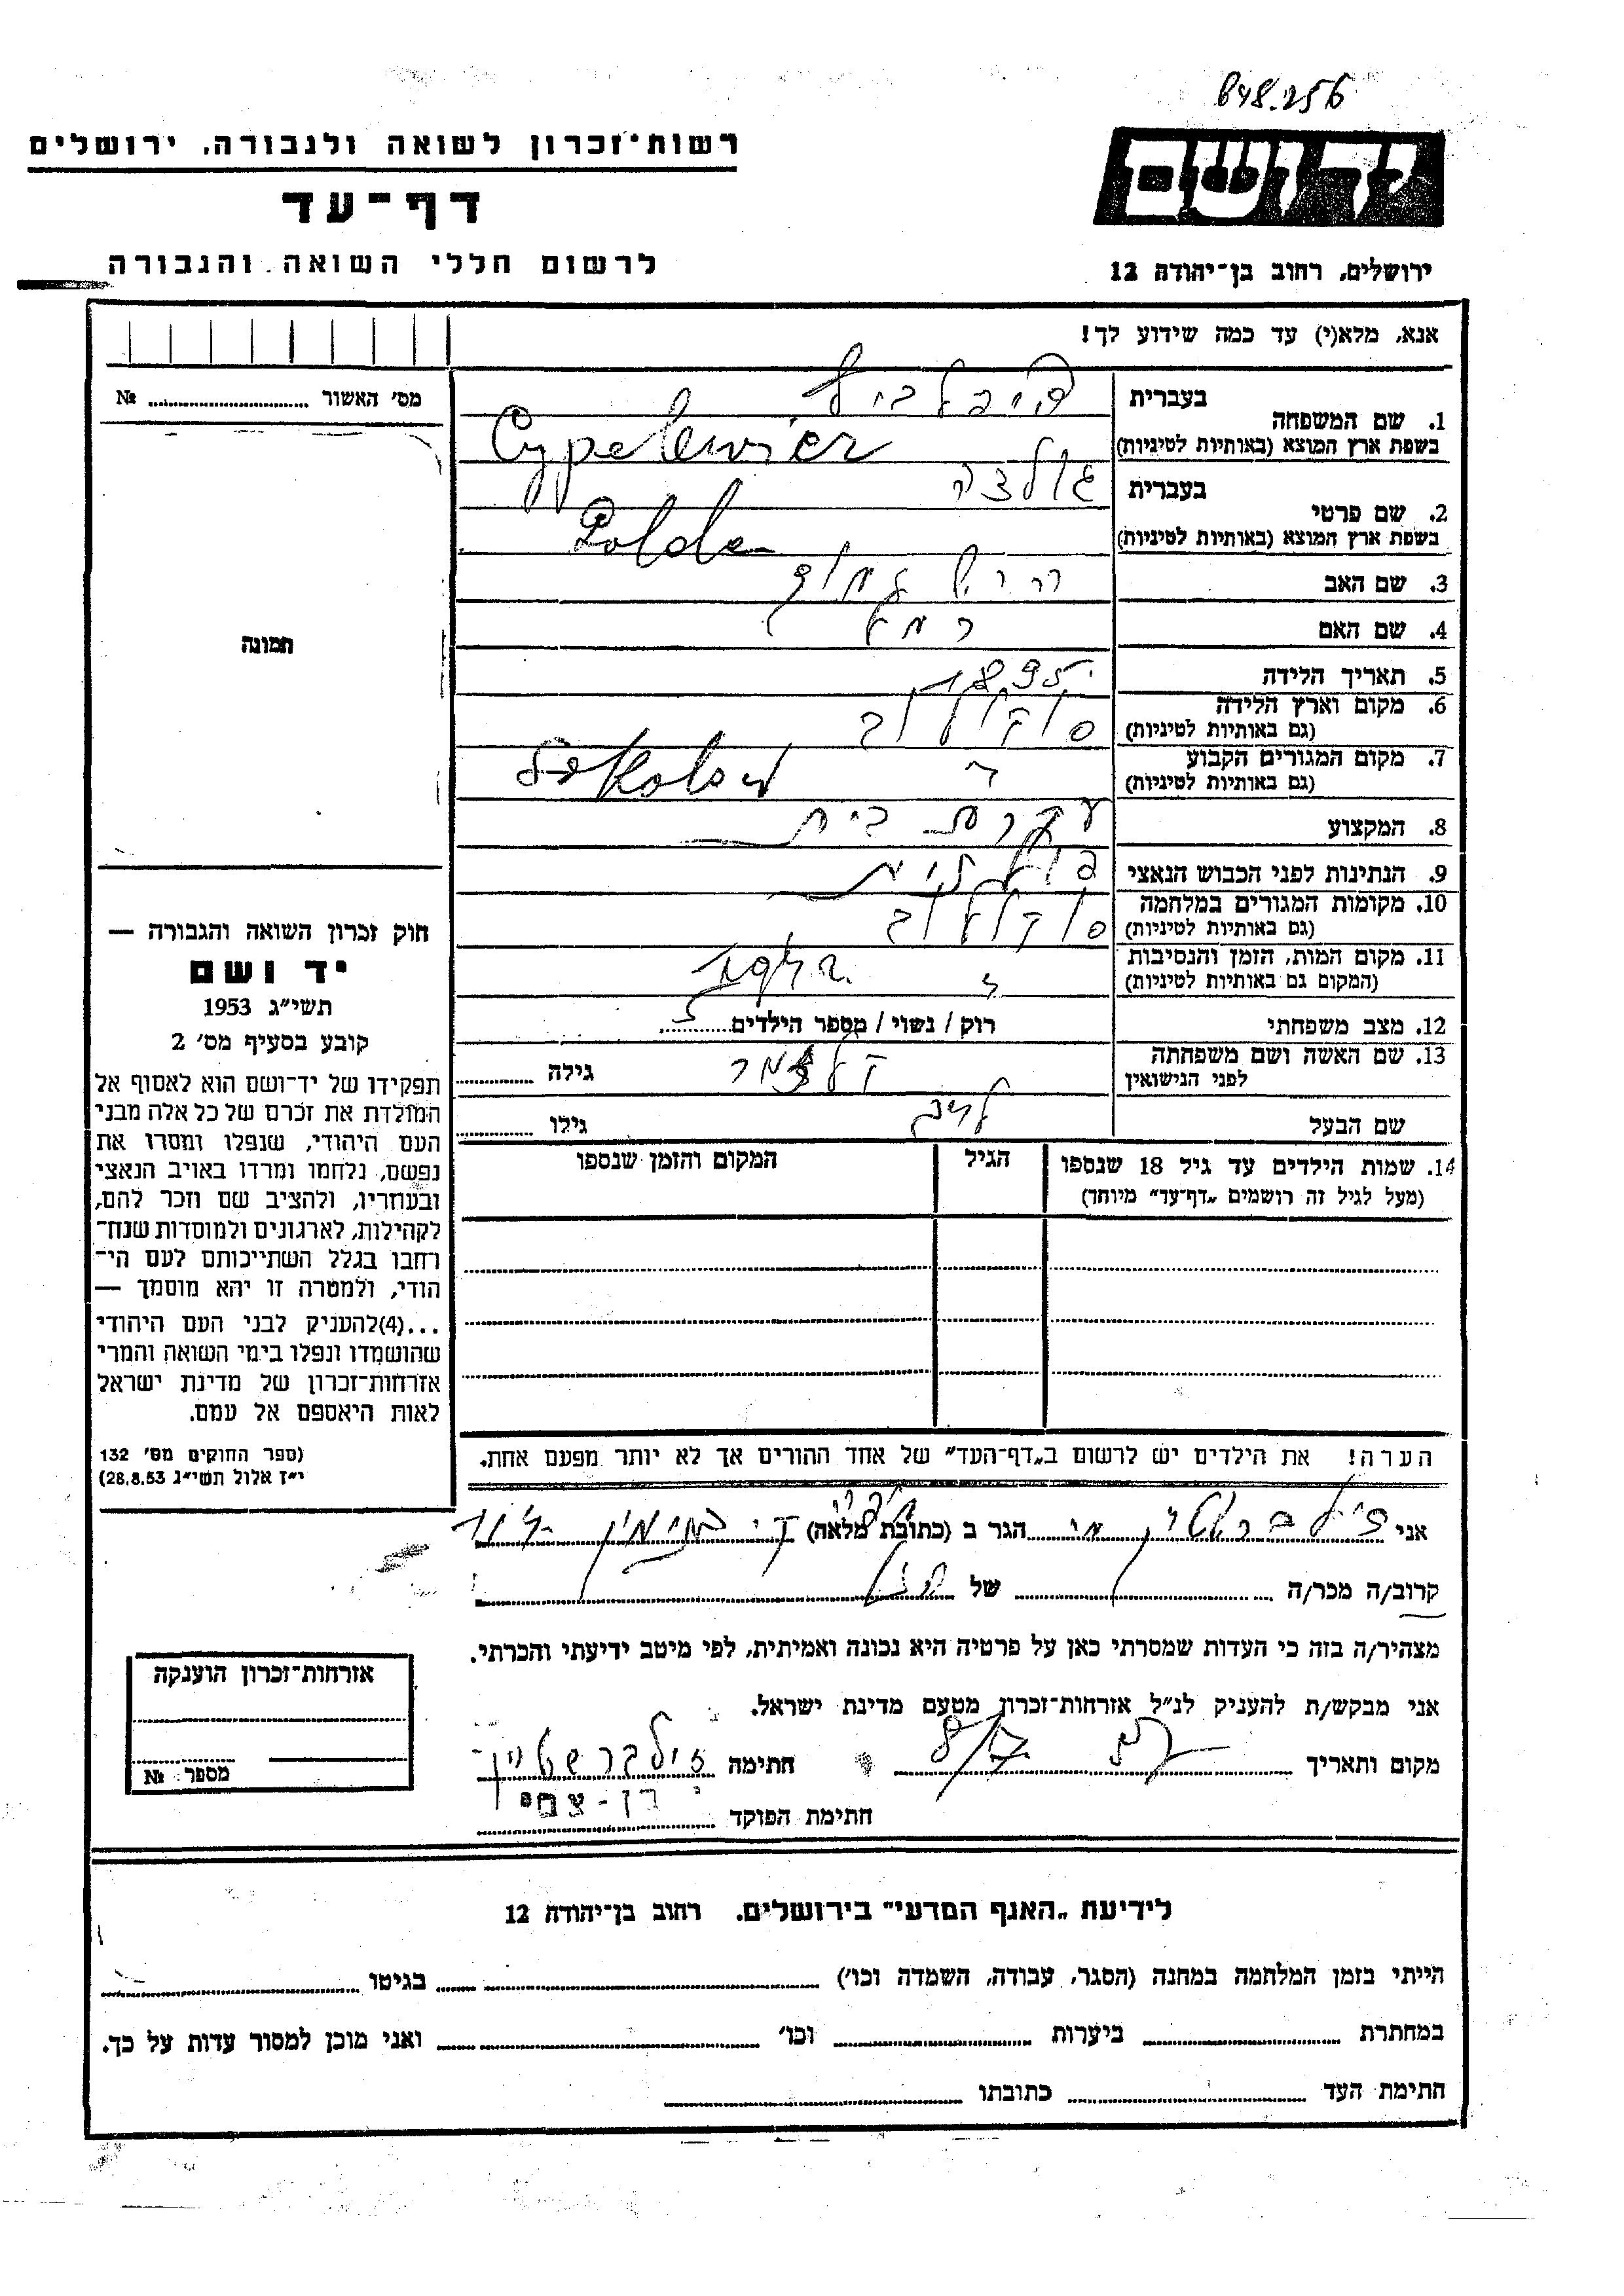 848.256
רשות־זכרון לשואה ולגבורה, ירושלים
דף־עד
לרשום חללי השואה והגבורה
יד ושם
ירושלים, רחוב בן־יהודה 12
אנא, מלא(י) עד כמה שידוע לך!
מס׳ האשור № 
תמונה
חוק זכרון השואה והגבורה —
יד ושם
תשי״ג 1953
קובע בסעיף מס׳ 2
תפקידו של יד־ושם הוא לאסוף אל
המולדת את זכרם של כל אלה מבני
העם היהודי, שנפלו ומסרו את
נפשם, נלחמו ומרדו באויב הנאצי
ובעוזריו, ולהציב שם וזכר להם,
לקהילות, לארגונים ולמוסדות שנח־
רחבו בגלל השתייכותם לעם הי־
הודי, ולמטרה זו יהא מוסמך —
...(4)להעניק לבני העם היהודי
שהושמדו ונפלו בימי השואה והמרי
אזרחות־זכרון של מדינת ישראל
לאות היאספם אל עמם.
(ספר החוקים מס׳ 132
י״ז אלול תשי״ג 28.8.53)
בעברית
1. שם המשפחה
בשפת ארץ המוצא (באותיות לטיניות) Cypelewicz
בעברית
2. שם פרטי
בשפת ארץ המוצא (באותיות לטיניות)
3. שם האב
4. שם האם רחל
5. תאריך הלידה 1895
6. מקום וארץ הלידה סוקולוב
(גם באותיות לטיניות)
7. מקום המגורים הקבוע Sokolow
(גם באותיות לטיניות)
8. המקצוע עקרת בית
9. הנתינות לפני הכבוש הנאצי פולנית
10. מקומות המגורים במלחמה סוקולוב
(גם באותיות לטיניות)
11. מקום המות, הזמן והנסיבות
(המקום גם באותיות לטיניות)
12. מצב משפחתי רוק / נשוי / מספר הילדים 5
13. שם האשה ושם משפחתה גילה
לפני הנישואין
שם הבעל גילו
14. שמות הילדים עד גיל 18 שנספו הגיל המקום והזמן שנספו
(מעל לגיל זה רושמים „דף־עד״ מיוחד)
הערה! את הילדים יש לרשום ב„דף־העד״ של אחד ההורים אך לא יותר מפעם אחת.
אני זילברשטין הגר ב (כתובת מלאה)
קרוב/ה מכר/ה של
מצהיר/ה בזה כי העדות שמסרתי כאן על פרטיה היא נכונה ואמיתית, לפי מיטב ידיעתי והכרתי.
אני מבקש/ת להעניק לנ״ל אזרחות־זכרון מטעם מדינת ישראל.
מקום ותאריך חתימה זילברשטיין
חתימת הפוקד בן-צבי
אזרחות־זכרון הוענקה
מספר №
לידיעת „האגף המדעי״ בירושלים. רחוב בן־יהודה 12
הייתי בזמן המלחמה במחנה (הסגר, עבודה, השמדה וכו׳) בגיטו
במחתרת ביערות וכו׳ ואני מוכן למסור עדות על כך.
חתימת העד כתובתו